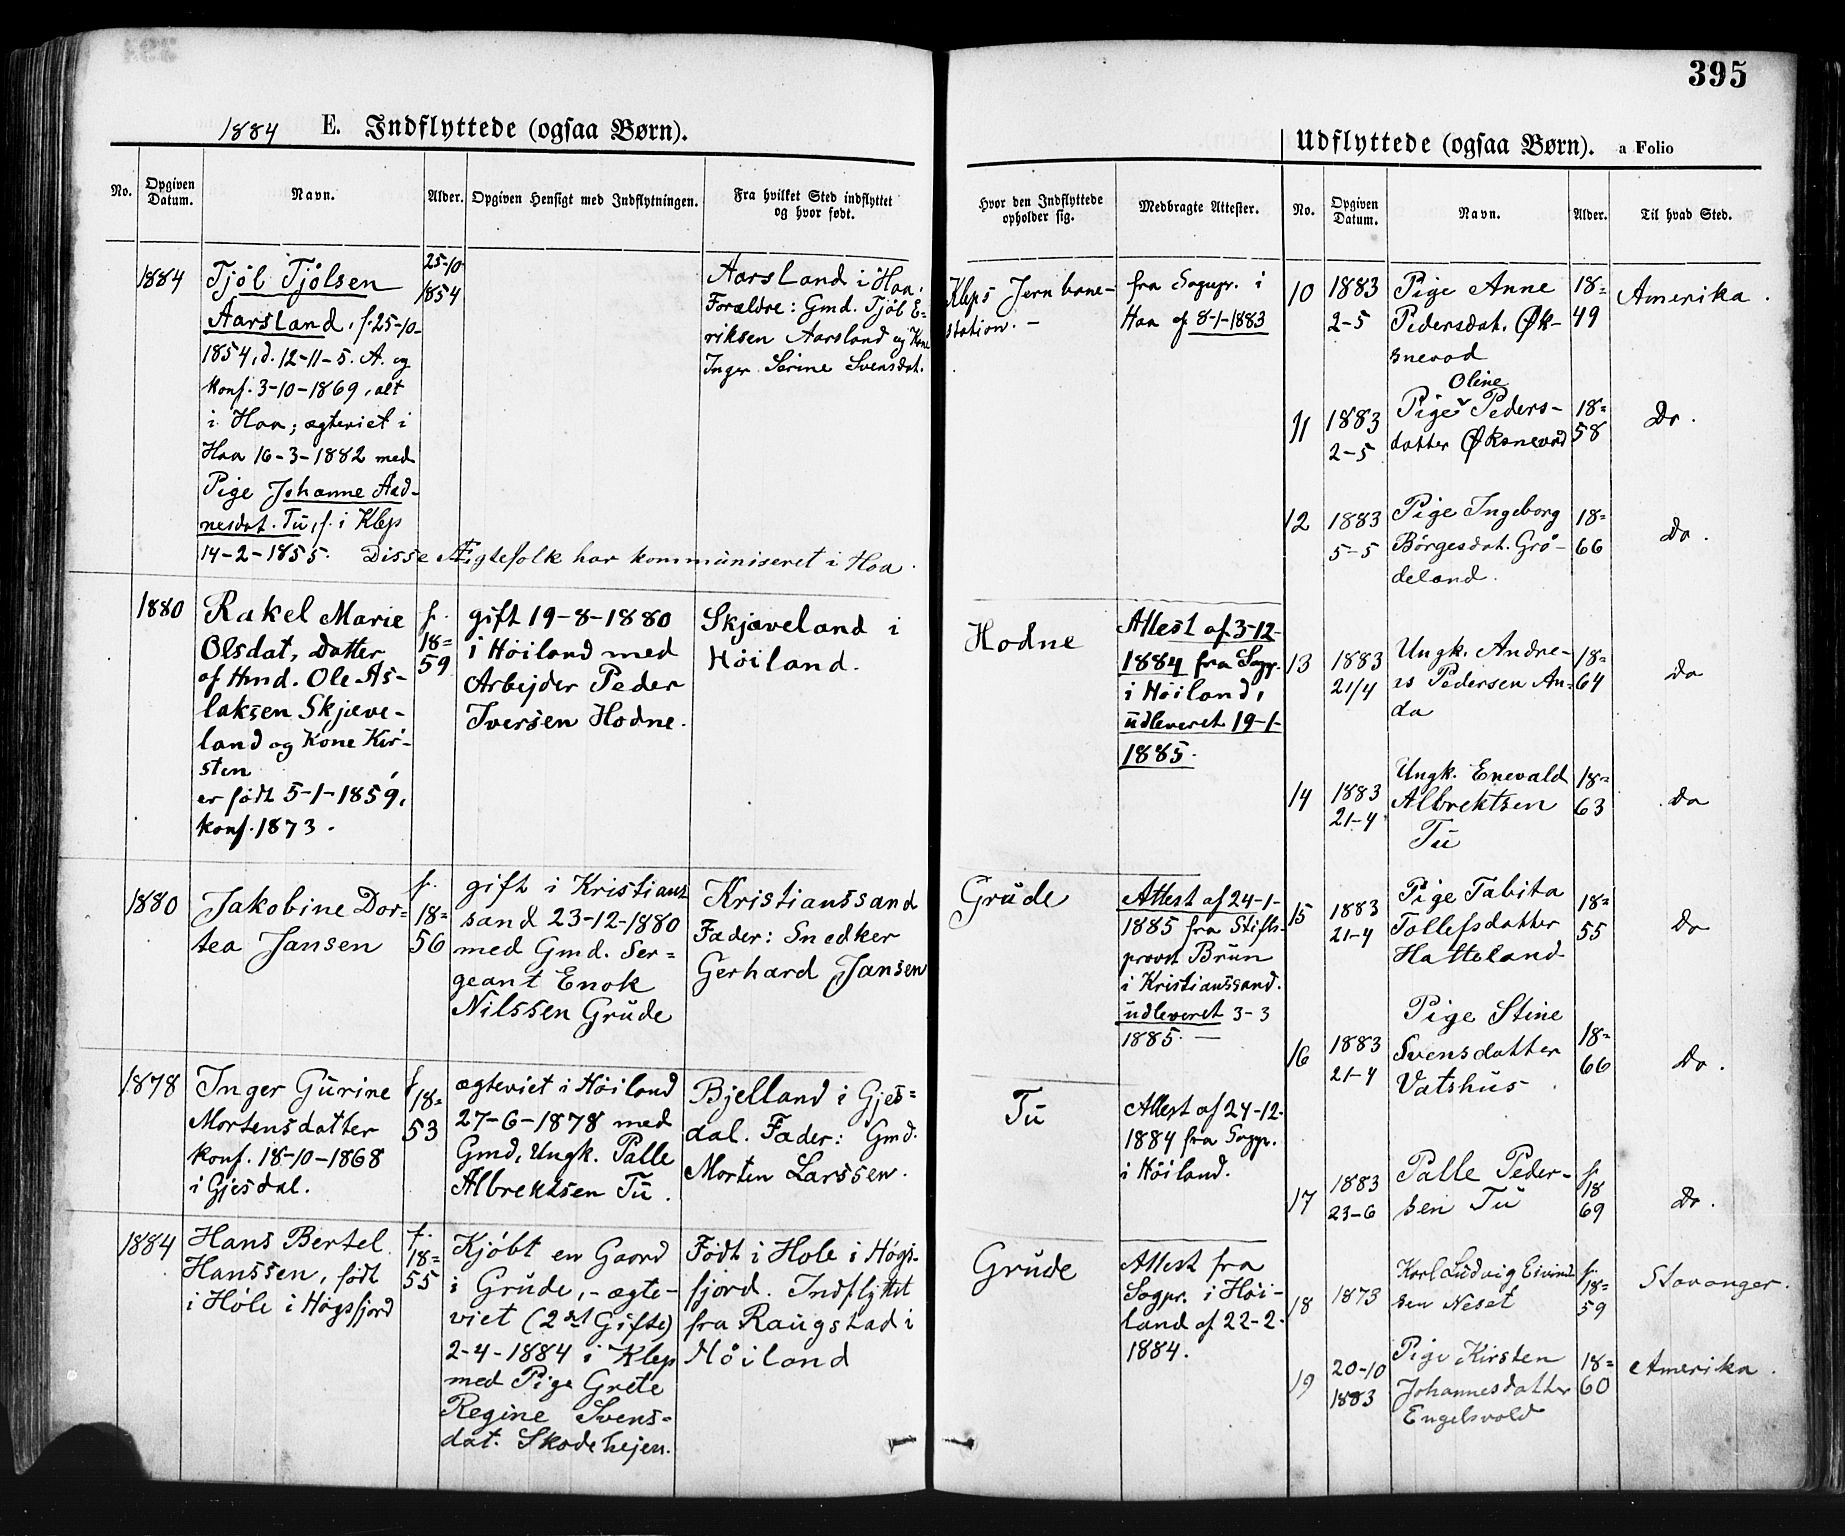 395
1884 E. Indflyttede (ogsaa Børn).
No.
Opgiven
Datum.
Navn.
Alder.
Opgiven Hensigt med Indflytningen.
Fra hvilket Sted indflyttet
og hvor født.
1884
Tjöl Tjölsen
Aarsland, f. 25-10-
1854, d. 12-11-5. A. og
konf. 3-10-1869, alt
i Haa; ægteviet i
Haa 16-3-1882 med
Pige Johanne Aad-
nesdat. Tu, f. i Klep
14-2-1855. Disse Ægtefolk har kommuniseret i Haa.
25-10
1854
Aarsland i Haa.
Forældre: Gmd. Tjöl E-
riksen Aarsland og Kone
Inger Serine Svensdat.
1880
Rakel Marie
Olsdat, Datter
af Hmd. Ole As-
laksen Skjæve-
land og Kone Kir-
sten
er født 5-1-1859,
konf. 1873.
f.
18=
59
gift 19-8-1880
i Höiland med
Arbejder Peder
Iversen Hodne.
Skjæveland i
Höiland.
1880
Jakobine Dor-
tea Jansen
f.
18=
56
gift i Kristians
sand 23-12-1880
med Gmd. Ser=
geant Enok
Nilssen Grude
Kristianssand
Fader: Snedker
Gerhard Jansen
1878
Inger Gurine
Mortensdatter
konf. 18-10-1868
i Gjesdal.
f
18=
53
ægteviet i Höiland
27-6-1878 med
Gmd, Ungk. Palle
Albrektsen Tu.
Bjelland i Gjes=
dal. Fader: Gmd.
Morten Larssen.
1884
Hans Bertel
Hanssen, født
i Høle i Høgsfjord
f.
18=
55
Kjöbt en Gaard
i Grude, - ægte-
viet (2det Gifte)
2-4-1884 i Klep
med Pige Grete
Regine Svens=
dat. Skadehejen.
Født i Hole i Høgs-
fjord. Indflyttet
fra Raugstad i
Höiland
Hvor den Indflyttede
opholder sig.
Medbragte Attester.
Kleps Jernbane-
station. -
fra Sogepr. i
Haa af 8-1-1883
Hodne
Attest af 3-12-
1884 fra Sogpr.
i Höiland,
udleveret 19-1-
1885.
Grude
Attest af 24-1-
1885 fra Stifts-
provst Brun
i Kristianssand.
udleveret 3-3
1885. -
Tu
Attest af 24-12-
1884 fra Sogpr.
i Höiland.
Grude
Attest fra
Sogpr. i Höi-
land af 22-2-
1884.
Udflyttede (ogsaa Børn). a Folio
No.
Opgiven
Datum.
Navn.
Alder.
Til hvad Sted.
10
1883
2-5
Pige Anne
Pedersdat. Øk-
snevad
18=
49
Amerika.
11
1883
2-5
Oline
Pige Peders-
datter Øksnevad
18=
58
Do.
12
1883
5-5
Pige Ingeborg
Börgesdat. Grö-
deland.
18=
66
Do.
13
1883
21/4
Ungk. Andre-
as Pedersen An-
da
18=
64
do
14
1883
21-4
Ungk. Enevald
Albrektsen
Tu
18=
63
do
15
1883
21-4
Pige Tabita
Tollefsdatter
Hatteland
18=
55
Do
16
1883
21-4
Pige Stine
Svensdatter
Vatshus.
18=
66
Do.
17
1883
23-6
Palle Peder-
sen Tu
f.
18
69
Do.
18
1873
Karl Ludvig Eivind
sen Neset
f.
18=
59
Stavanger.
19
20-10
1883
Pige Kirsten
Johannesdatter
Engelsvold
18=
60
Amerika.